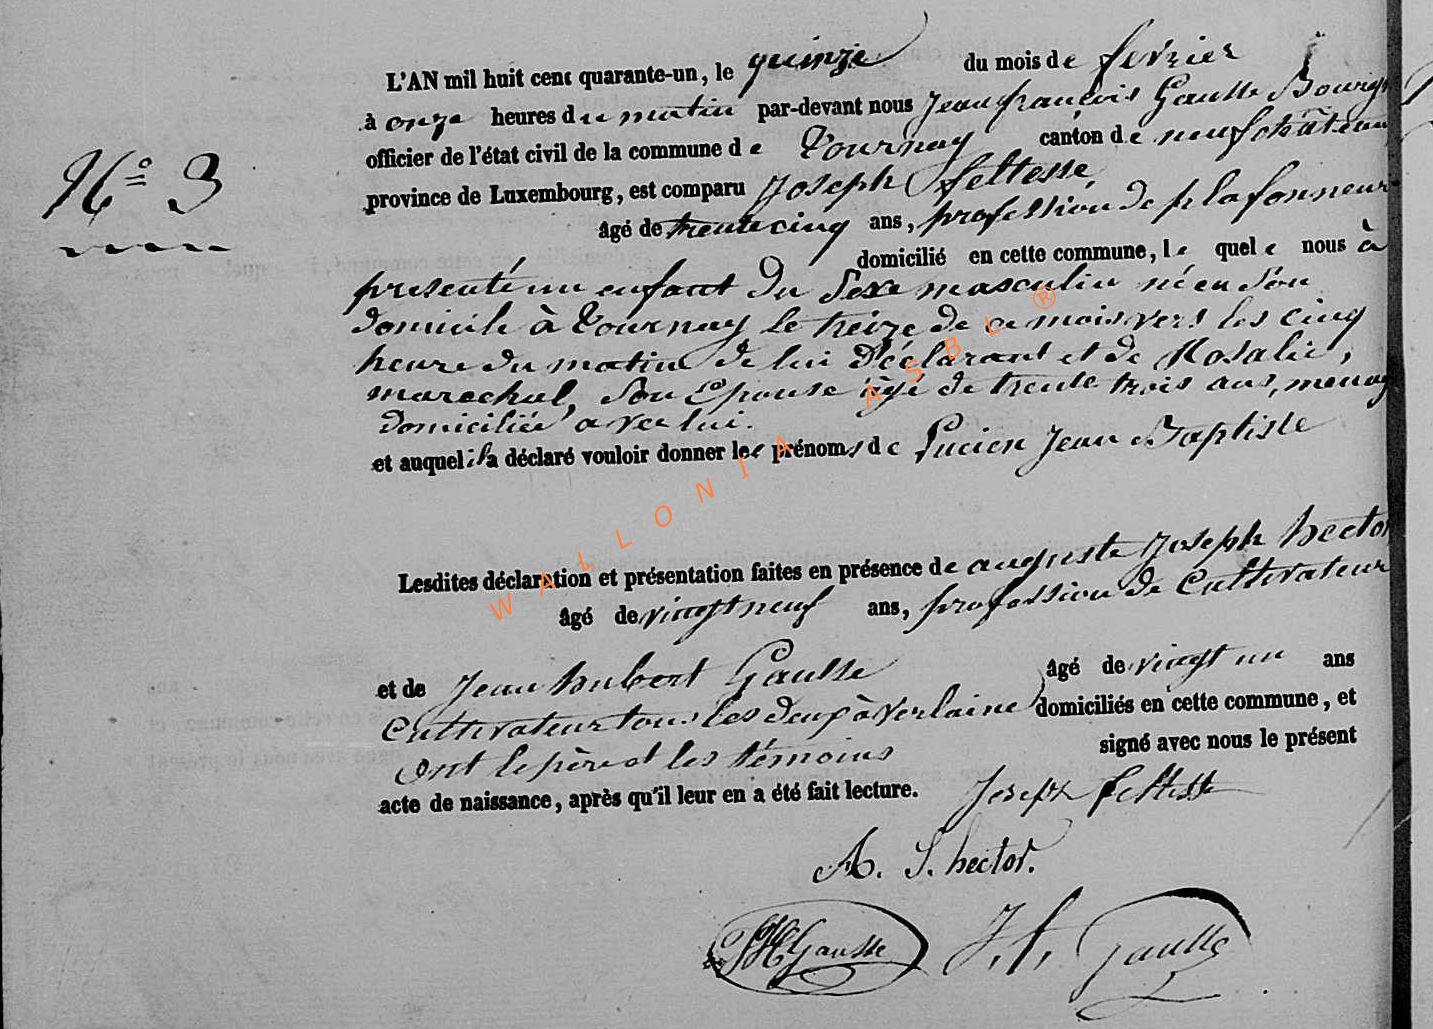 L'AN mil huit cent quarante-un, le quinze du mois de fevrier
à onze heures du matin par-devant nous Jean françois Gausse Bourgm
officier de l'état civil de la commune de Tournay canton de neufchâteau
N° 3
province de Luxembourg, est comparu Joseph fettesse
âgé de trente cinq ans, profession de plafonneur
domicilié en cette commune, le quel e nous à
presenté un enfant du Sexe masculin né en son
domicile à Tournay le treize de ce mois vers les cinq
heure du matin de lui Déclarant et de Rosalie,
marechal, Son Epouse âgé de trente trois ans, menag
domiciliée avec lui.
et auquel il a déclaré vouloir donner les prénoms de Lucien Jean Baptiste
Lesdites déclaration et présentation faites en présence de auguste Joseph hector
âgé de vingt neuf ans, profession de Cultivateur
et de Jean hubert Gausse âgé de vingt un ans
Cultivateur tous les deux à Verlaine domiciliés en cette commune, et
ont le père et les témoins signé avec nous le présent
acte de naissance, après qu'il leur en a été fait lecture. Joseph fettesse
A. J. hector.
JH Gausse J. f. Gausse
WALLONIA ASBL ®